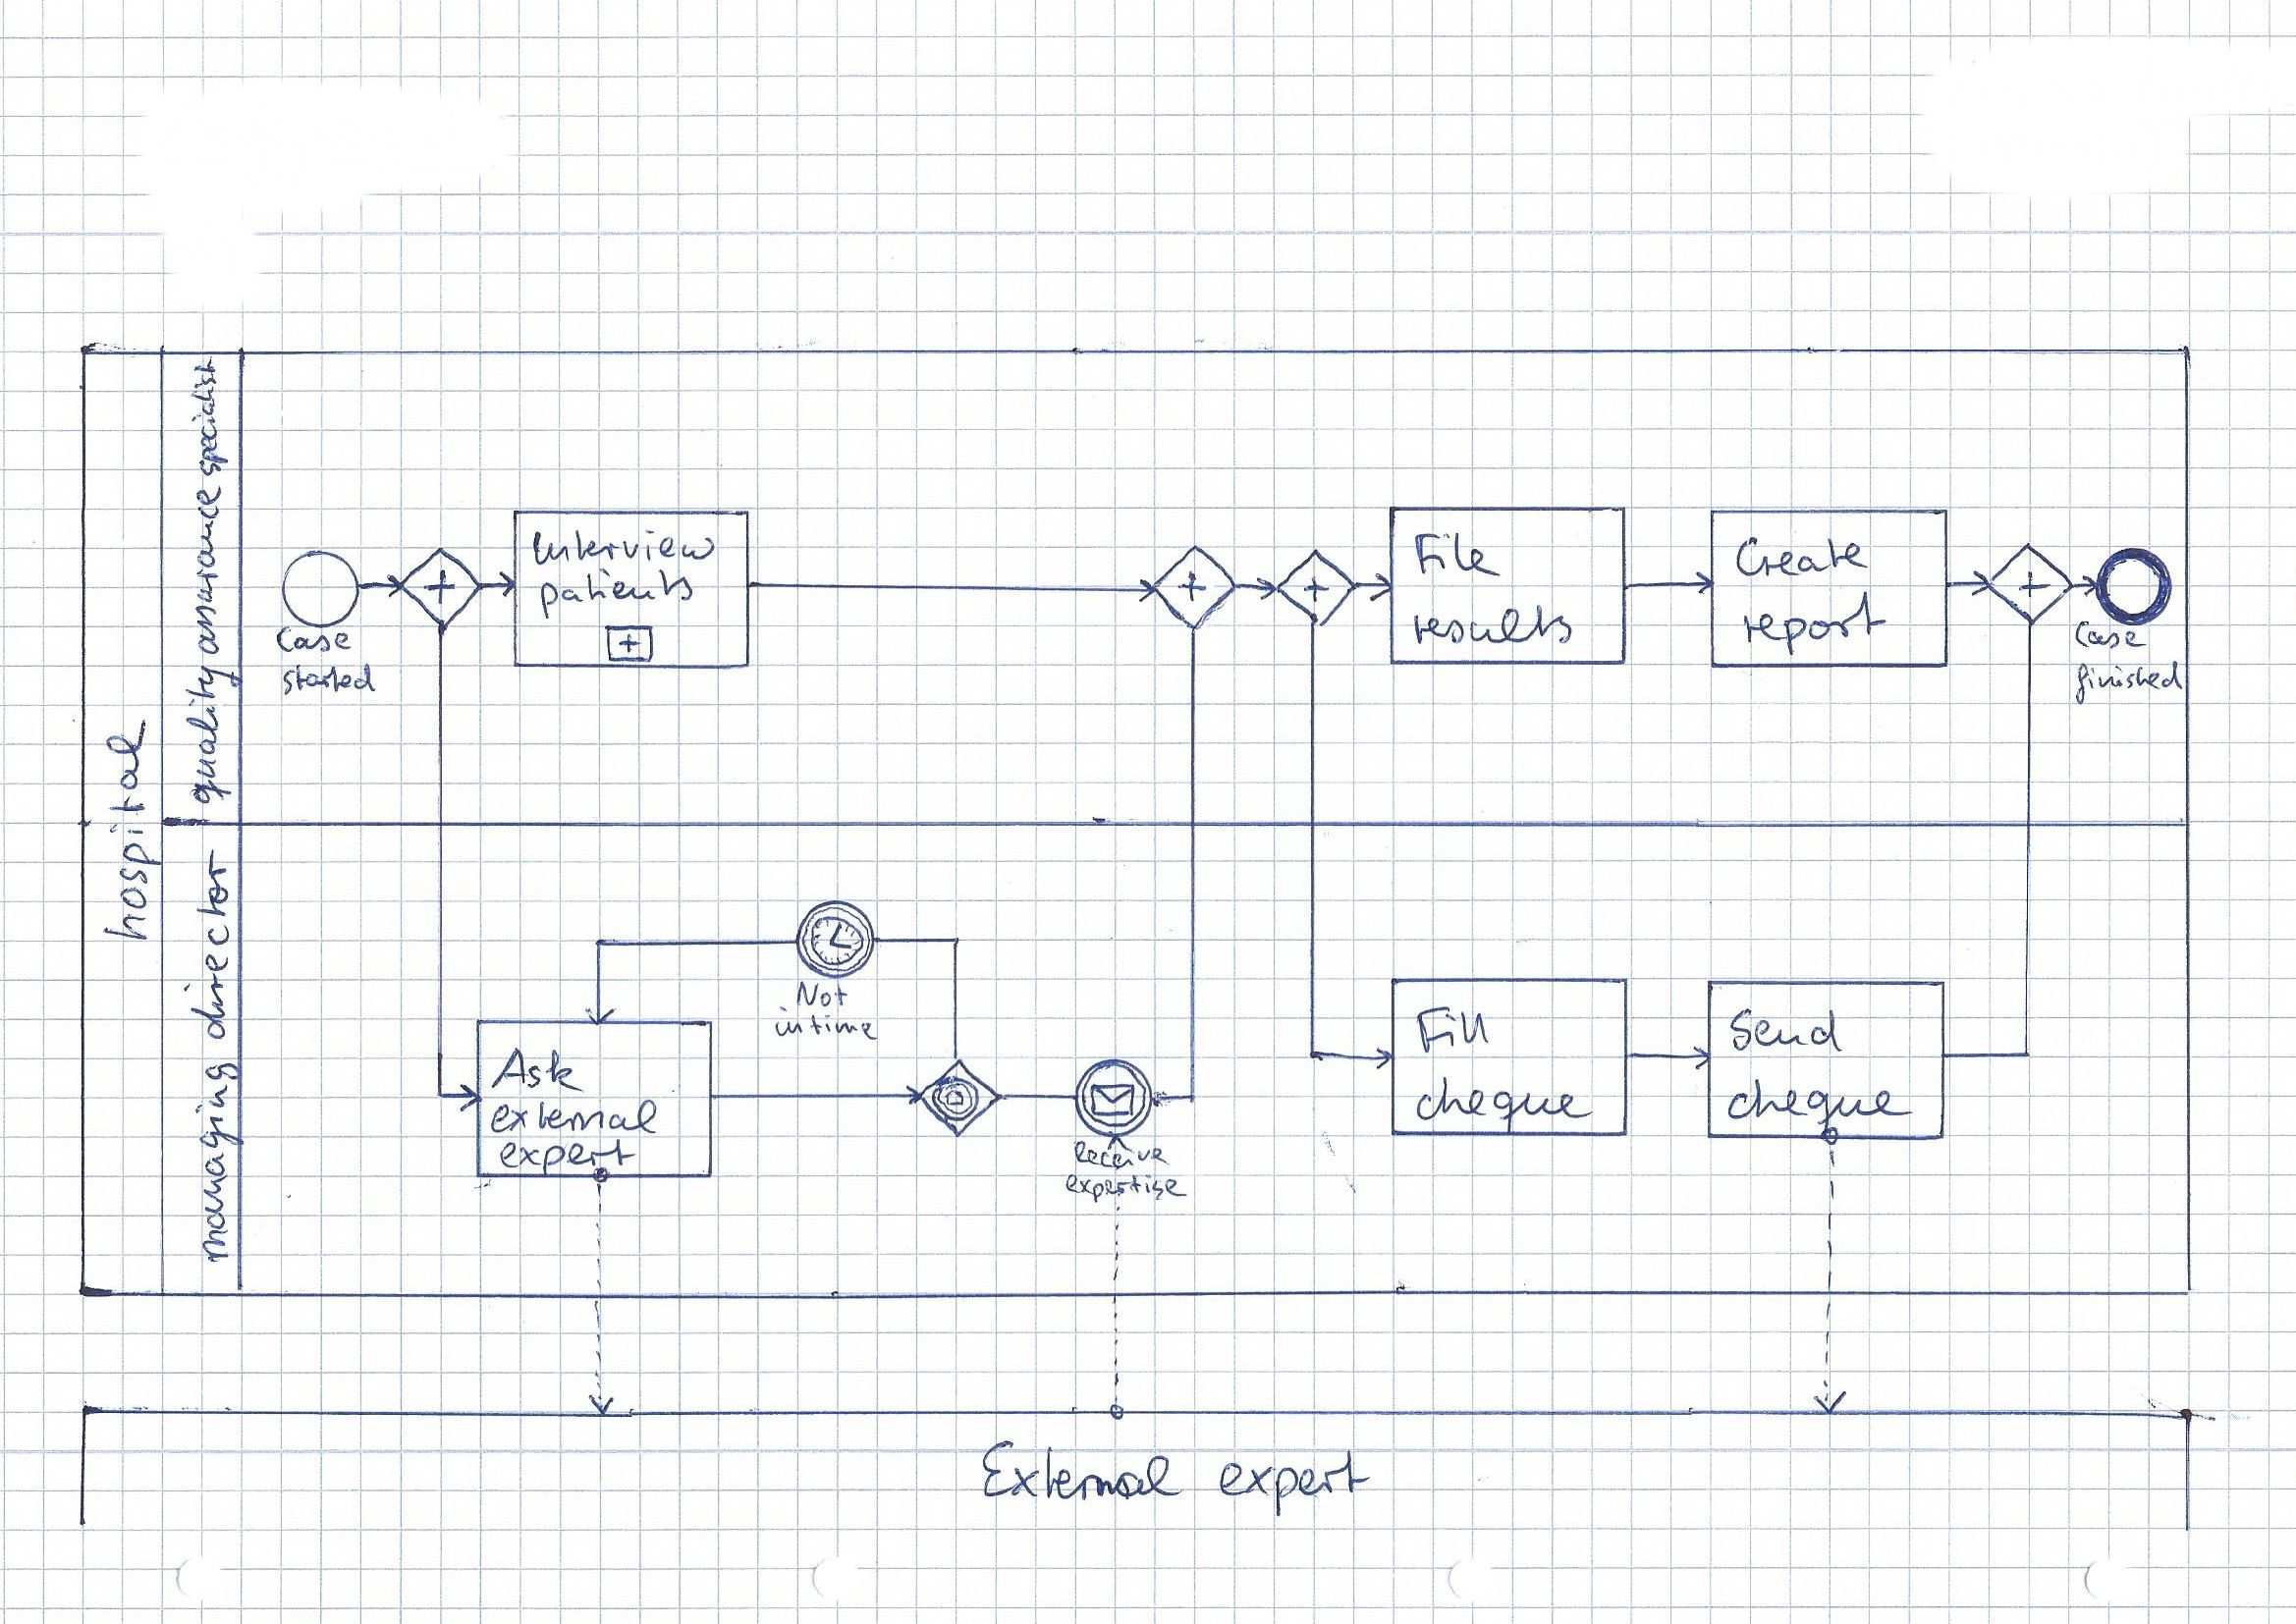 hospital
quality assurance specialist
managing director
Case
started
Interview
patients
File
results
Create
report
Case
finished
Not
in time
Ask
external
expert
Receive
expertise
Fill
cheque
Send
cheque
External expert